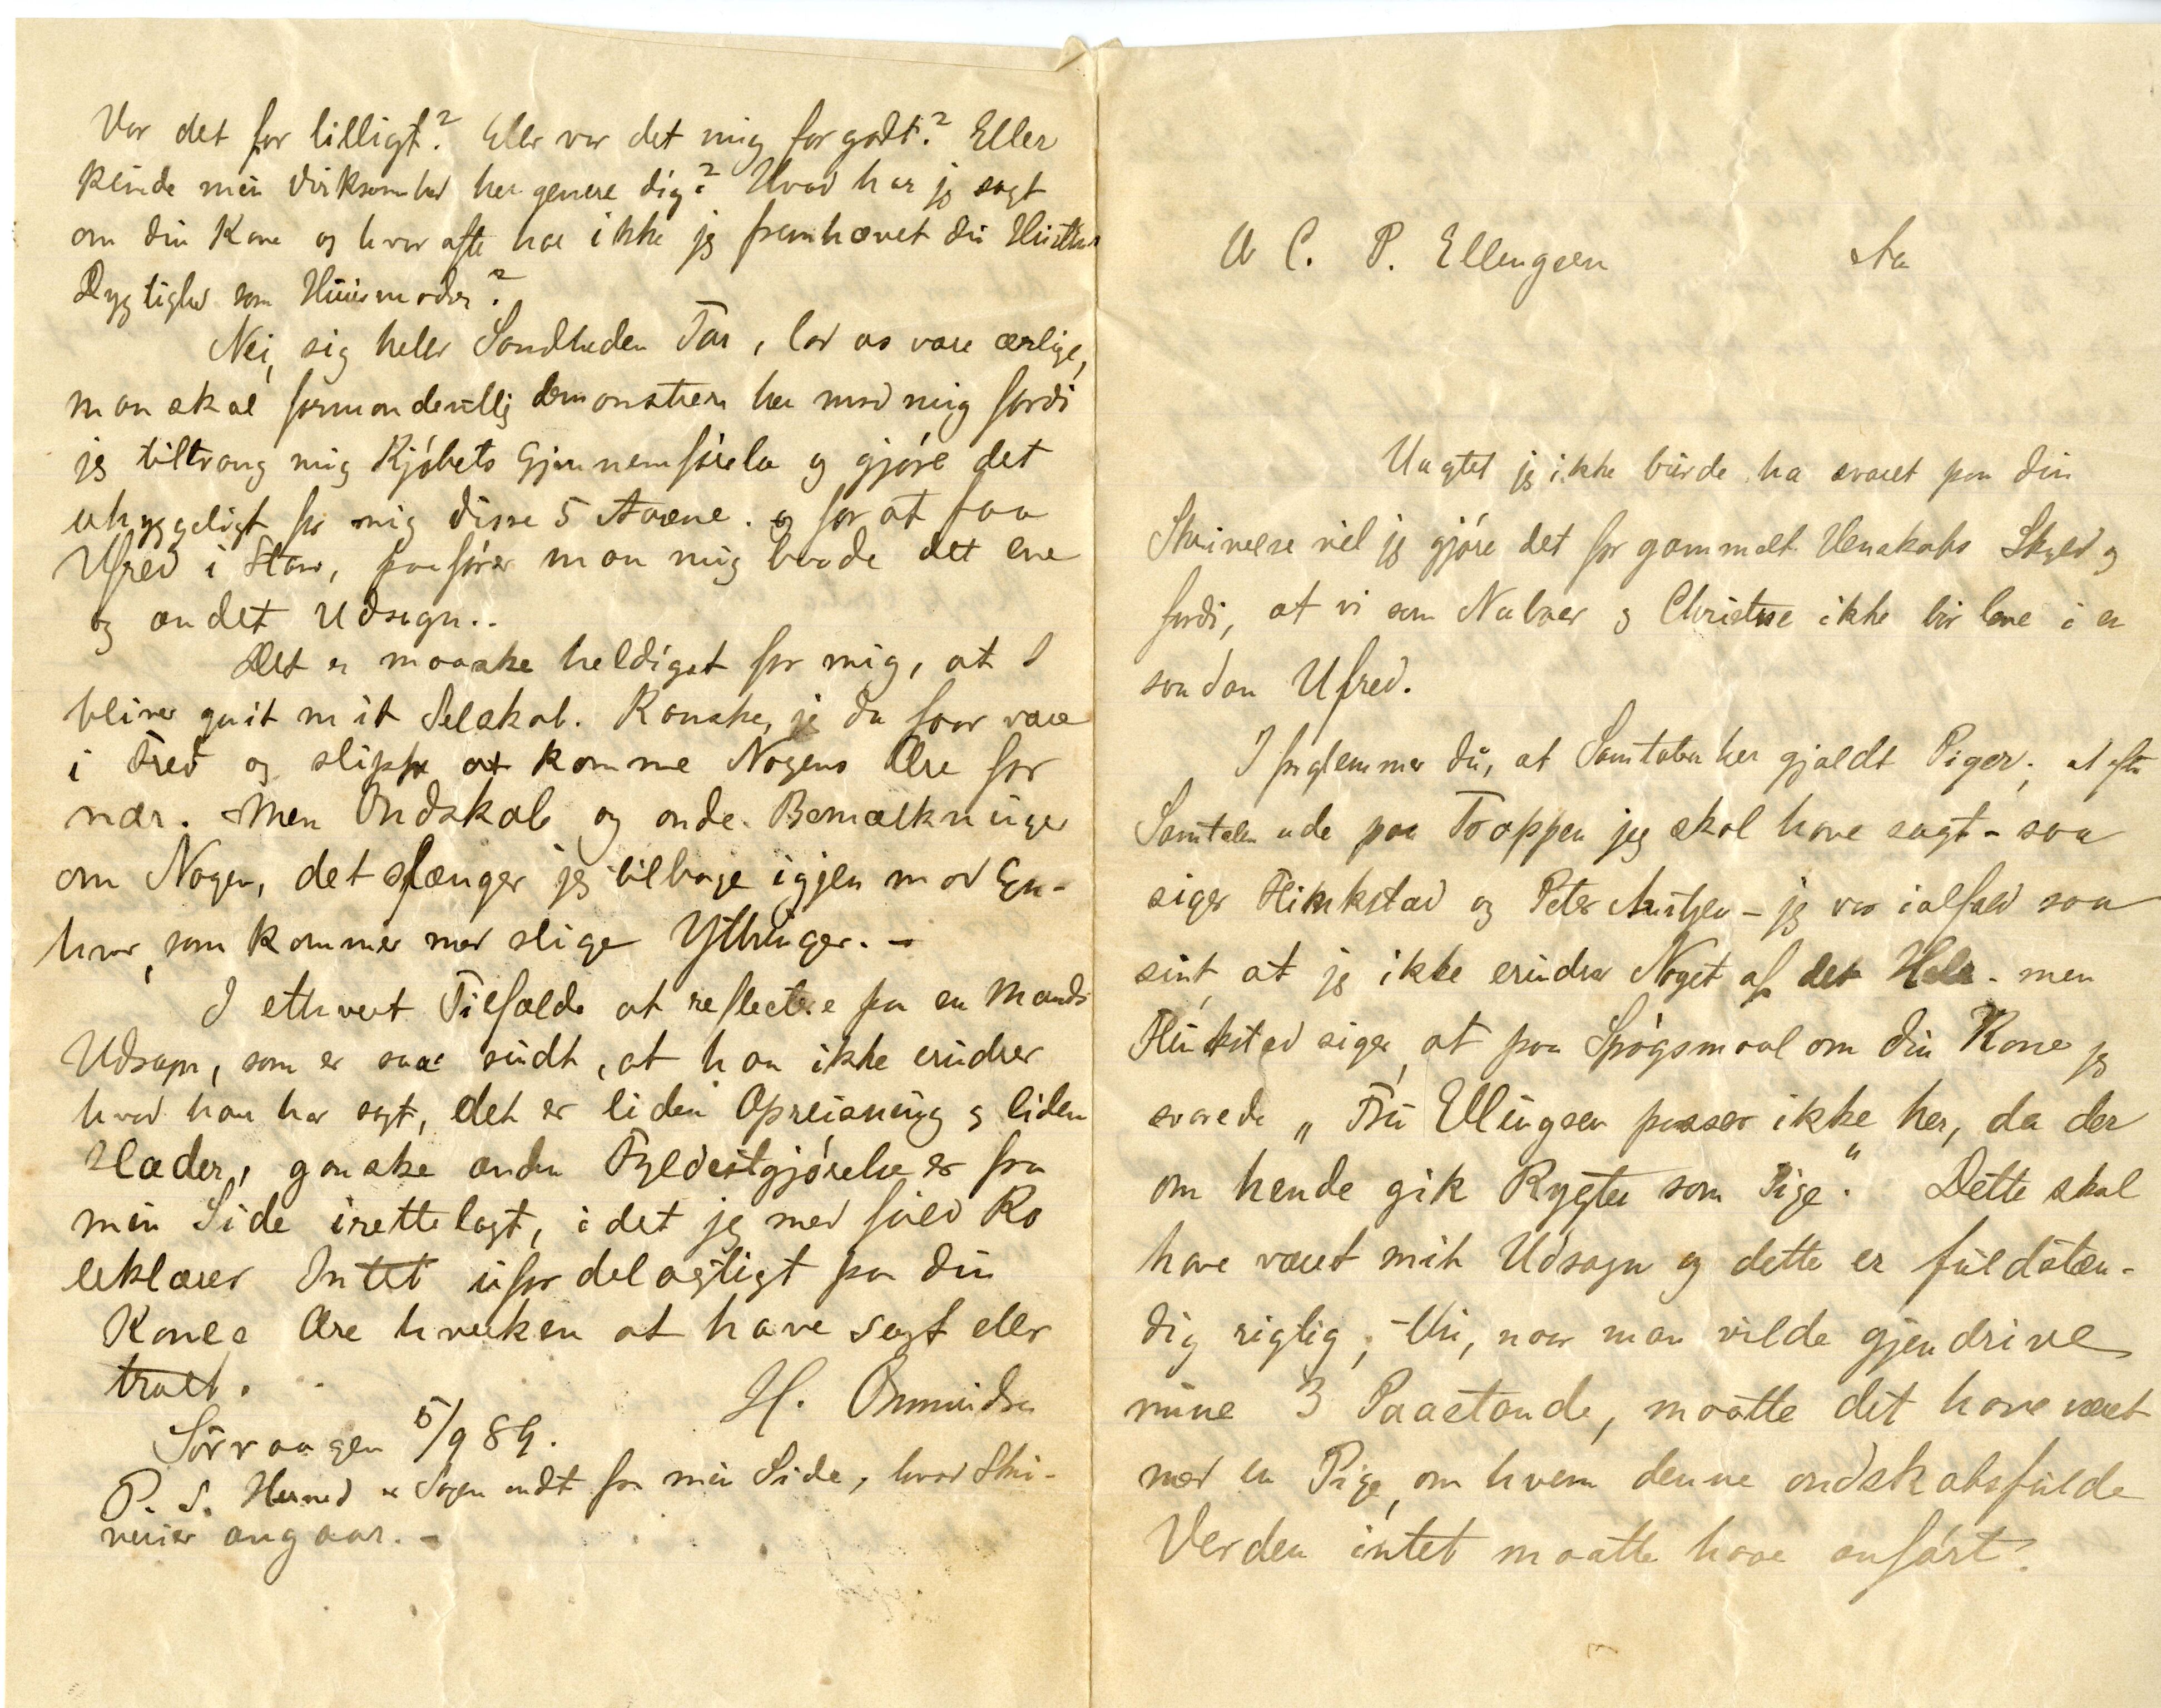 Var det for billigt? Eller var det mig for godt? Eller
kunde min Virksomhed her genere dig? Hvad har jeg sagt
om din Kone og hvor ofte har ikke jeg fremhævet din Hustrus
Dygtighed som Huusmoder?
Nei, sig heller Sandheden Far, lad os være ærlige,
man skal formodentlig demonstrere her mod mig fordi
jeg tiltrang mig Kjøbets Gjennemførelse og gjøre det
uhyggeligt for mig disse 5 Aarene. og for at faa
Ufred i Stand, paafører man mig baade det ene
og andet Udsagn..
Det er maaske heldigst for mig, at I
bliver quit mit Selskab. Kanske, jeg da faar være
i Fred og slippe at komme Nogens Ære for
nær. Men Ondskab og onde Bemærkninger
om Nogen, det slænger jeg tilbage igjen mod En-
hver, som kommer med slige Yttringer. -
I ethvert Tilfælde at reflectere paa en Mands
Udsagn, som er saa sindt, at han ikke erindrer
hvad han har sagt, det er liden Opreisning og liden
Hæder, ganske anden Fyldestgjørelse er fra
min Side irettelagt, i det jeg med fuld Ro
erklærer Intet ufordelagtigt paa din
Kones Ære hverken at have sagt eller
troet.
H. Omundsen
Sørvaagen 5/9 89.
P. S. Hermed er Sagen endt fra min Side, hvad Skri-
verier angaar. -
C. P. Ellingsen Aa
Uagtet jeg ikke burde ha svaret paa din
Skrivelse vil jeg gjøre det for gammelt Venskabs Skyld og
fordi, at vi som Naboer og Christne ikke bør leve i en
saadan Ufred.
I forglemmer du, at Samtalen her gjaldt Piger; at efter
Samtalen ude paa Trappen jeg skal have sagt - saa
siger Flinkstad og Peter - jeg var ialfald saa
sint, at jeg ikke erindrer Noget af det Hele - men
Flinkstad siger, at paa Spørgsmaal om din Kone jeg
svarede „Fru Ellingsen passer ikke her, da der
om hende gik Rygter som Pige". Dette skal
have været mit Udsagn og dette er fuldstæn-
dig rigtig; Thi, naar man vilde gjendrive
mine 3 Paastande, maatte det have været
med en Pige, om hvem denne ondskabsfulde
Verden intet maatte have anført.